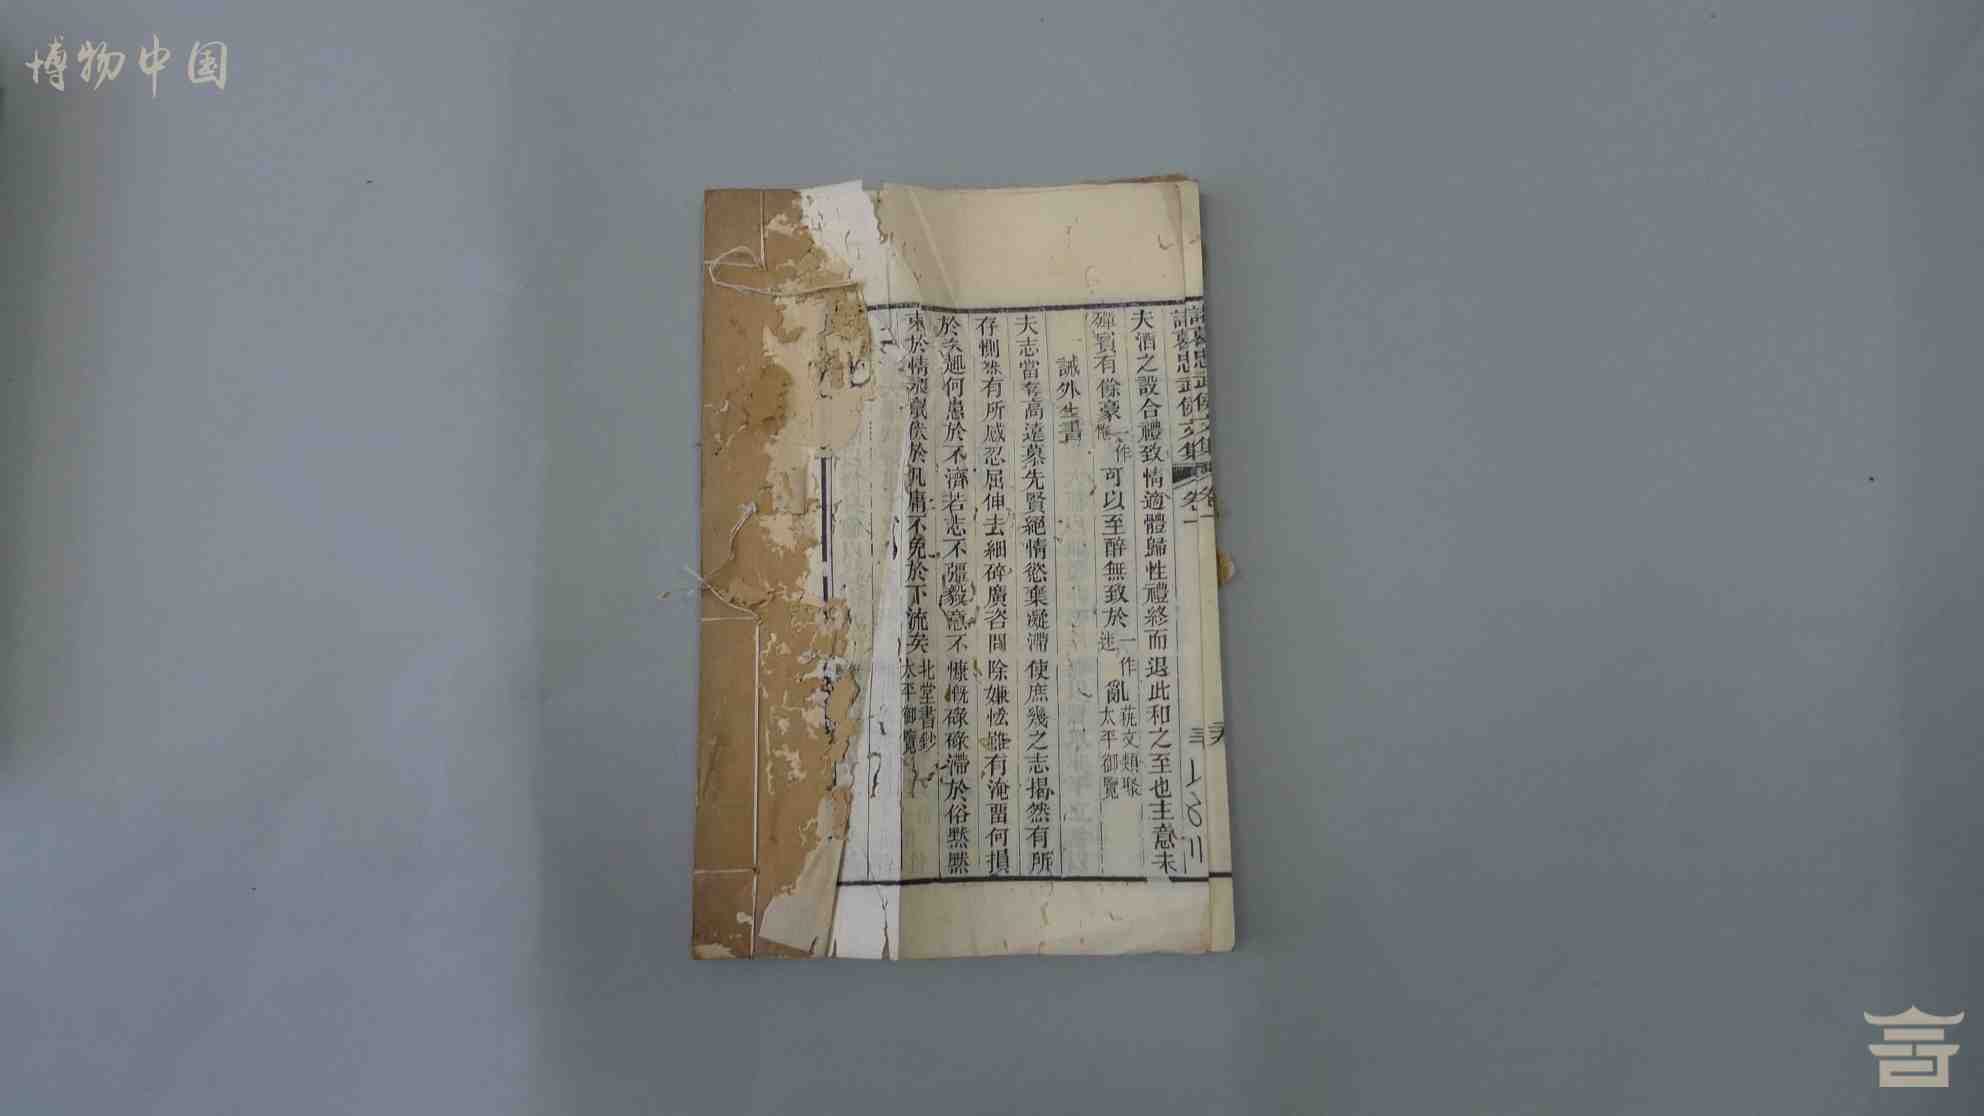 博物中国
諸葛忠武侯文集 卷一
夫酒之設合禮致情適體歸性禮終而退此和之至也主意未
殫賓有餘豪一作倦可以至醉無致於一作迷亂藝文類聚太平御覽
誡外生書
夫志當存高遠慕先賢絕情慾棄凝滯使庶幾之志揭然有所
存惻然有所感忍屈伸去細碎廣咨問除嫌恡雖有淹留何損
於美趣何患於不濟若志不彊毅意不慷慨碌碌滯於俗默默
束於情永竄伏於凡庸不免於下流矣北堂書鈔太平御覽